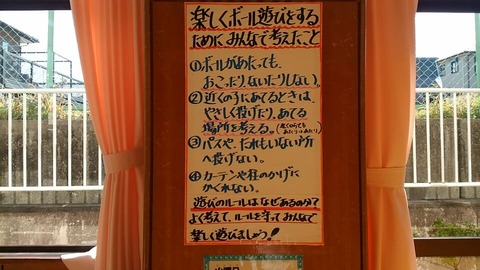 楽しくボール遊びをする
ために みんなで考えたこと
①ボールがあたっても、
おこったりないたりしない。
②近くの子にあてるときは、
やさしく投げたり、あてる
場所を考える。
③パスや、だれもいない所
へ投げない。
④カーテンや柱のかげに
かくれない。
遊びのルールはなぜあるのか？
よく考えて、ルールを守って みんなで
楽しく遊びましょう！